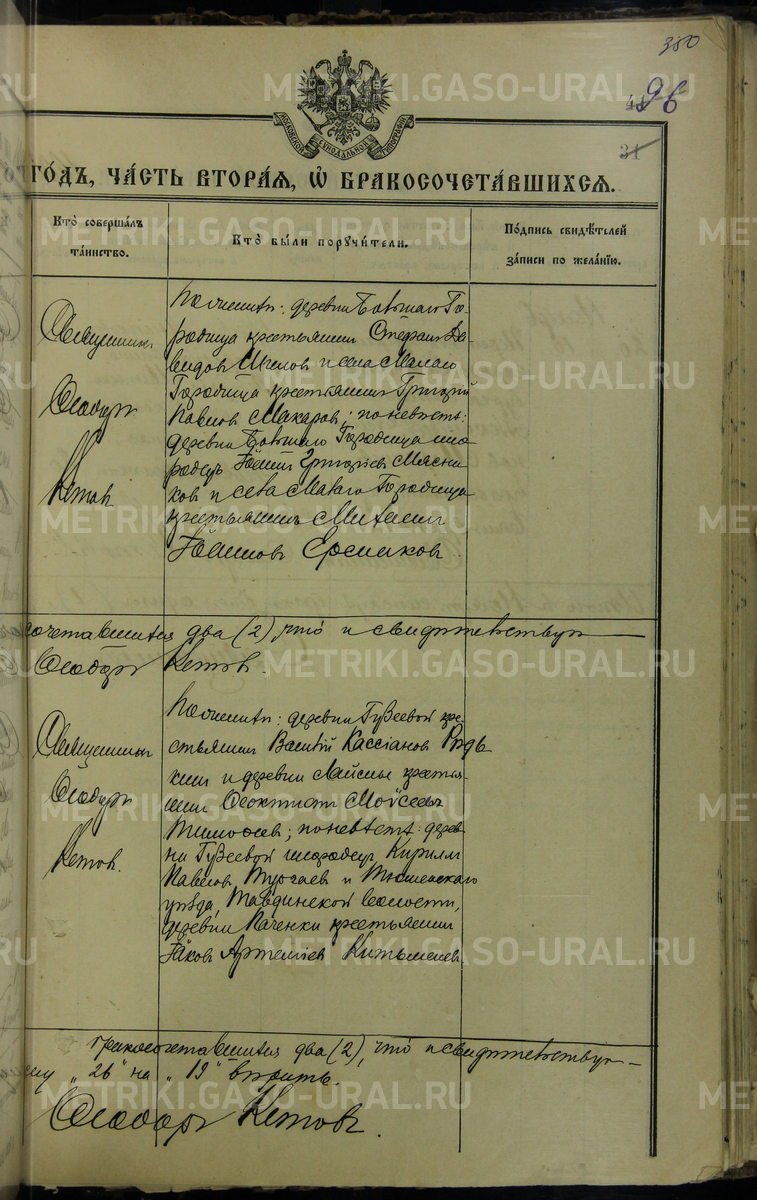 350
96
31
МОСКОВСКОЙ СѴНОДАЛЬНОЙ ТИПОГРАФІИ
ГОДЪ, ЧАСТЬ ВТОРАЯ, Ѿ БРАКОСОЧЕТАВШИХСЯ.
Кто совершалъ таинство.
Кто были поручители.
Подпись свидѣтелей записи по желанію.
Священникъ
Ѳеодоръ
Кетовъ
По женихѣ: деревни Большаго Го-
родища крестьянинъ Стефанъ Да-
видовъ и села Малаго
Городища крестьянинъ Григорій
Павловъ Макаровъ; по невѣстѣ:
деревни Большаго Городища ино-
родецъ Іоаннъ Григоріевъ Мясни-
ковъ и села Малаго Городища
крестьянинъ Михаилъ
Іоанновъ Ермаковъ.
сочетавшихся два (2), что и свидѣтельствую
Ѳеодоръ Кетовъ.
Священникъ
Ѳеодоръ
Кетовъ.
По женихѣ: деревни Гузеевой кре-
стьянинъ Василій Кассіановъ Рядь-
кинъ и деревни крестья-
нинъ Ѳеоктистъ Мойсеевъ
Тимоѳеевъ; по невѣстѣ: дерев-
ни Гузеевой инородецъ Кириллъ
Павловъ и Тюменскаго
уѣзда, Тавдинской волости,
деревни Паченки крестьянинъ
Іаковъ Артеміевъ
бракосочетавшихся два (2), что и свидѣтельствую
„26“ на „19“ вѣрить.
Ѳеодоръ Кетовъ.
METRIKI.GASO-URAL.RU